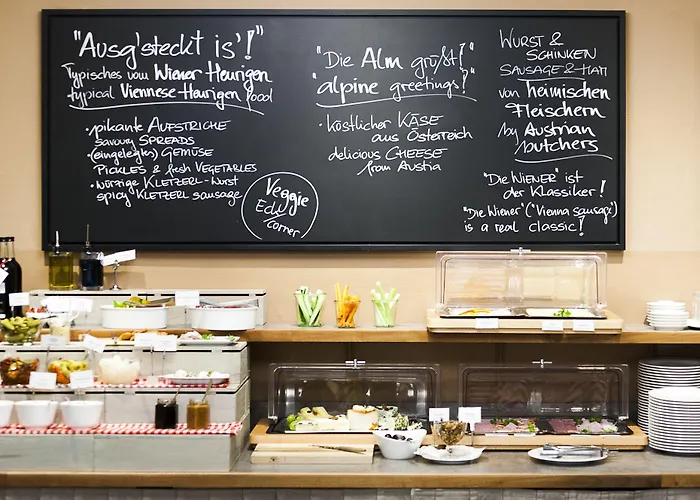 "Ausg'steckt is'!"
Typisches vom Wiener Heurigen
typical Viennese Heurigen food
• pikante AUFSTRICHE
savoury SPREADS
• (eingelegtes) GEMÜSE
PICKLES & fresh VEGETABLES
• würzige KLETZERL-Wurst
spicy KLETZERL sausage
Veggie
Eck/
corner
"Die Alm grüßt!"
"alpine greetings!"
• köstlicher KÄSE
aus Österreich
delicious CHEESE
from Austria
WURST &
SCHINKEN
SAUSAGE & HAM
von heimischen
Fleischern
by Austrian
butchers
"DIE WIENER" ist
der Klassiker!
"Die Wiener" ("Vienna sausage")
is a real classic!